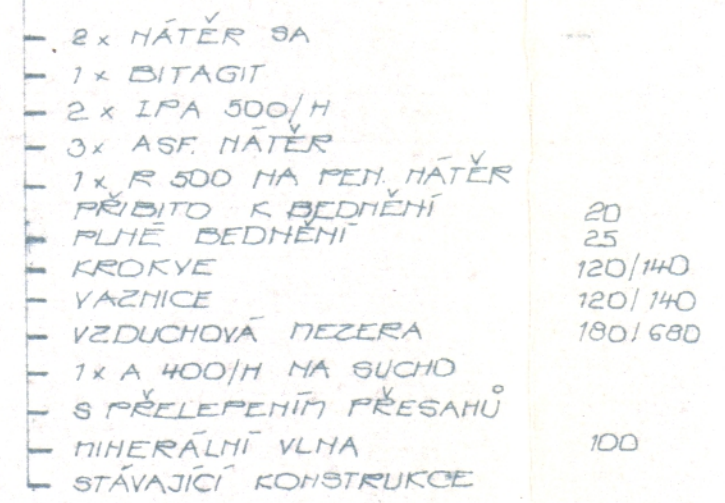 2x NÁTĚR SA
1x BITAGIT
2x IPA 500/H
3x ASF. NÁTĚR
1x R 500 NA PEN. NÁTĚR
PŘIBITO K BEDNĚNÍ 20
PLNÉ BEDNĚNÍ 25
KROKVE 120/140
VAZNICE 120/140
VZDUCHOVÁ MEZERA 180/680
1x A 400/H NA SUCHO
S PŘELEPENÍM PŘESAHŮ
MINERÁLNÍ VLNA 100
STÁVAJÍCÍ KONSTRUKCE